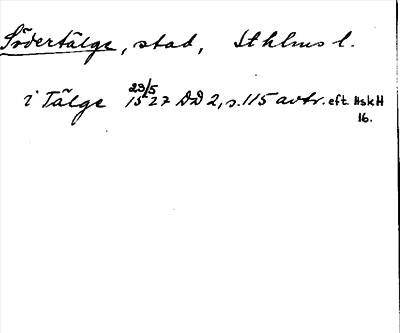 Södertälge, stad, Sthlms l.
i Tälge 23/5 1527 DD 2, s. 115 avtr. eft. HskH
16.